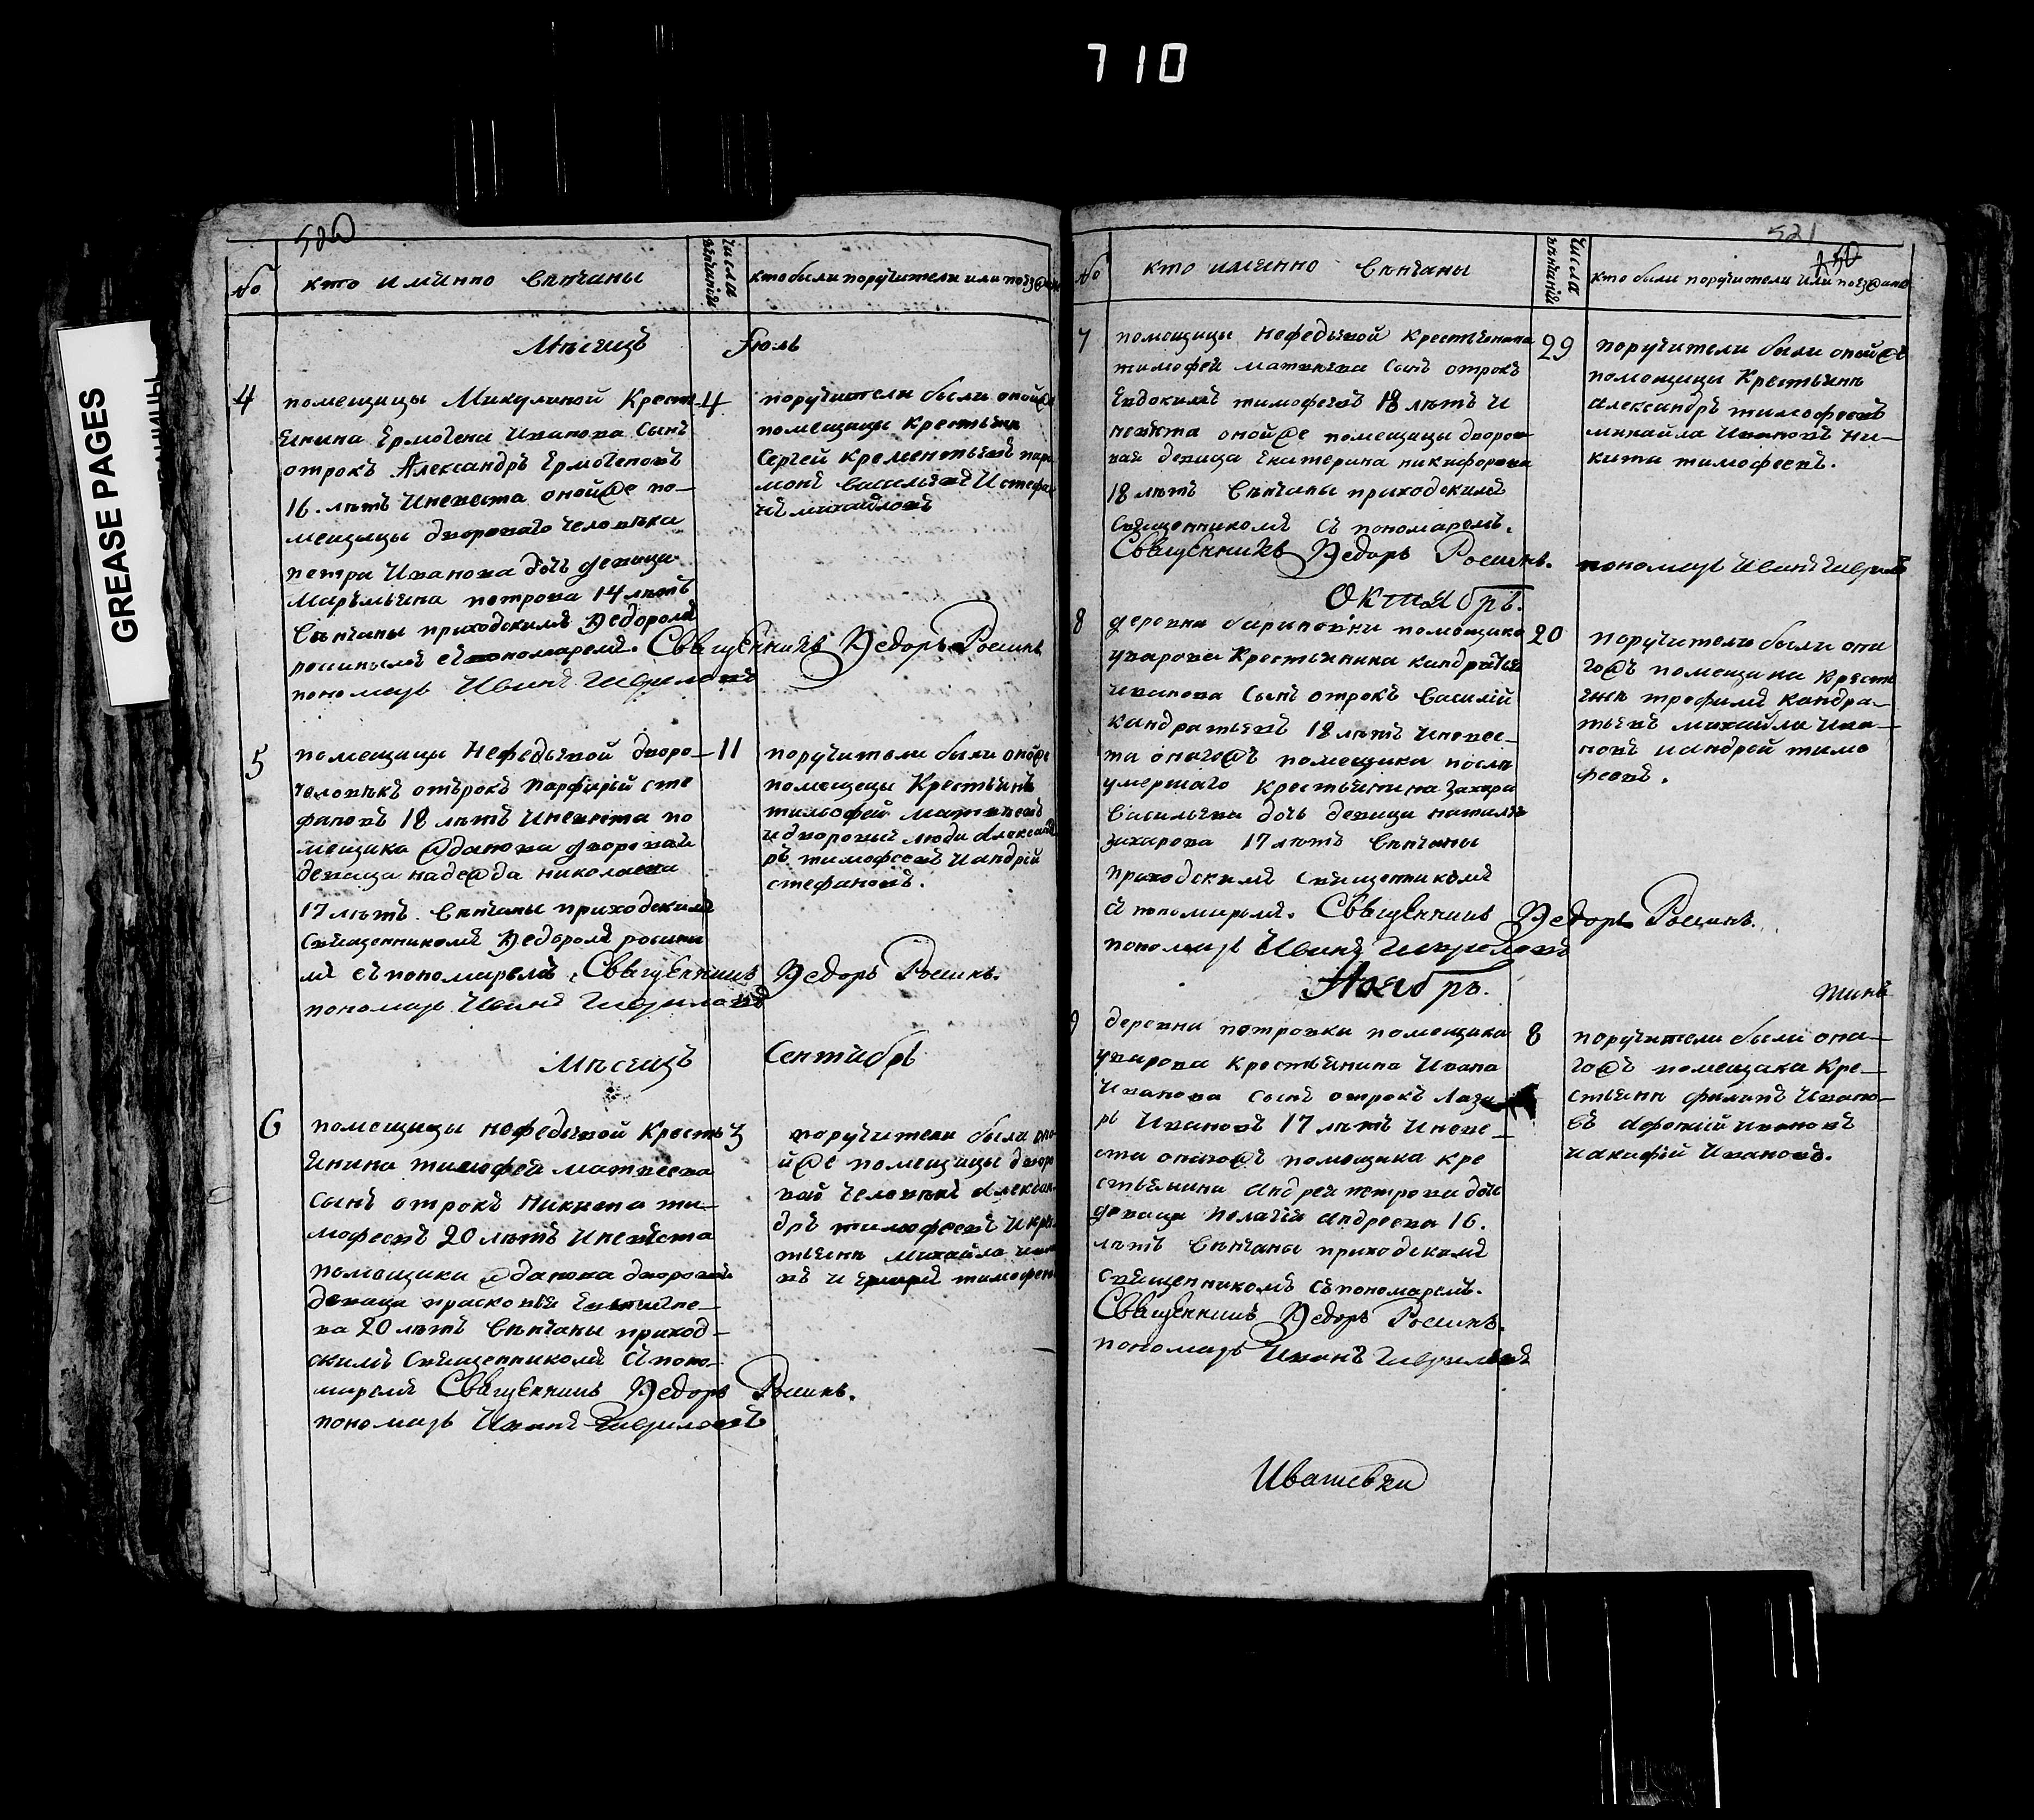 710
GREASE PAGES
520
№
кто имянно вѣнчаны
числа вѣнчанія
кто были поручители или поѣзжане
Мѣсяцъ Іюль
4
помещицы Микулиной Крест
янина Ермогена Иванова сынъ
отрокъ Александръ Ермогеновъ
16. лѣтъ Иневеста оной же по-
мещицы двороваго человѣка
петра Иванова дочь девица
петрова 14 лѣтъ
вѣнчаны приходскимъ Ѳедоромъ
росинымъ съ пономаремъ. Священникъ Ѳедоръ Росинъ
пономарь Иванъ Гавриловъ
4
поручители были оной же
помещицы крестьяне
Сергей Крементьевъ пара
монъ васильевъ Истефа
нъ михайловъ
5
помещицы Нефедьевой дворо-
человѣкъ отърокъ Парфирій сте
фановъ 18 лѣтъ Иневѣста по
мещика Жданова дворовая
девица надежда николаева
17 лѣтъ. вѣнчаны приходскимъ
священникомъ Ѳедоромъ росины
мъ съ пономаремъ. Священникъ Ѳедоръ Росинъ.
пономарь Иванъ Гавриловъ
11
поручители были оной же
помещецы Крестьянъ
тимофей матвеевъ
идворовыя люди Александ
ръ тимофеевъ Иандрѣй
стефановъ.
Мѣсяцъ Сентябрь
6
помещицы нефедьевой Кресть
янина тимофея матвеева
сынъ отрокъ Никита ти-
мофеевъ 20 лѣтъ Иневѣста
помещика Жданова дворовая
девица прасковья
ва 20 лѣтъ вѣнчаны приход-
скимъ священникомъ съ поно-
маремъ Священникъ Ѳедоръ Росинъ.
пономарь Иванъ Гавриловъ
3
поручители были оно
й же помещицы дворо
вай человѣкъ Алексан
дръ тимофеевъ Икре
тьяне Михайло ива
въ и тимофеев
521
№
кто имянно вѣнчаны
числа вѣнчанія
кто были поручители или поѣзжане
7
помещицы Нефедьевой Крестьянина
тимофея матвеева сынъ отрокъ
Евдокимъ тимофеевъ 18 лѣтъ И
невѣста оной же помещицы дворо
вая девица Екатерина никифорова
18 лѣтъ вѣнчаны приходскимъ
священникомъ съ пономаремъ.
Священникъ Ѳедоръ Росинъ. пономарь Иванъ Гаврилов
29
поручители были оной же
помещицы Крестьяне
Александръ тимофеевъ
михайла Ивановъ Ни-
кита тимофеевъ.
Октябрь.
8
деревни бариновки помещика
уварова Крестьянина кандратья
иванова сынъ отрокъ василій
кандратьевъ 18 лѣтъ Иневес-
та оного жъ помещика после
умершаго крестьянина Захара
васильева дочь девица наталья
захарова 17 лѣтъ вѣнчаны
приходскимъ священникомъ
съ пономаремъ. Священникъ Ѳедоръ Росинъ.
пономарь Иванъ Гавриловъ
20
поручители были она
го жъ помещика крест
яне трофимъ Кандра-
тьевъ михайла Ива-
новъ иандрей тимо
феевъ.
Ноябрь.
9
деревни петровки помещика
уварова крестьянина Ивана
Иванова сынъ отрокъ Лаза
рь Ивановъ 17 лѣтъ Иневе-
ста оного жъ помещика кре
стьянина Андрея петрова дочь
девица Палагия Андреева 16.
лѣтъ вѣнчаны приходскимъ
священникомъ съ пономаремъ.
Священникъ Ѳедоръ Росинъ.
пономарь Иванъ Гавриловъ
8
поручители были она-
го жъ помещика Кре-
стьяне филипъ Ивано-
въ Афонкій ивановъ
иакифій Ивановъ.
Ивашевки